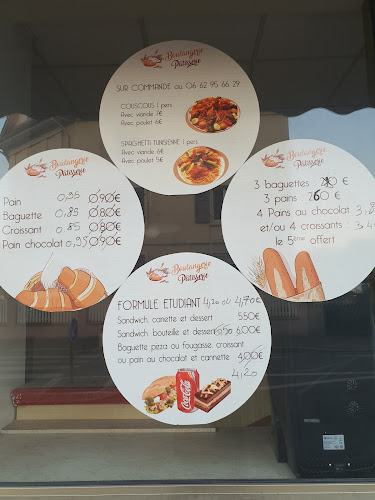 Boulangerie
Patisserie
SUR COMMANDE au 06 62 95 66 29
COUSCOUS 1 pers.
Avec viande 7€
Avec poulet 6€
SPAGHETTI TUNISIENNE 1 pers.
Avec viande 6€
Avec poulet 5€
Boulangerie
Patisserie
Pain 0,95 0.90€
Baguette 0,85 0.80€
Croissant 0,85 0.80€
Pain chocolat 0,95 0.90€
Boulangerie
Patisserie
3 baguettes
3 pains
4 Pains au chocolat
et/ou 4 croissants :
le 5ème offert
Boulangerie
Patisserie
FORMULE ETUDIANT 4,20 ou 4,70€
Sandwich, canette et dessert 5.50€
Sandwich, bouteille et dessert 6.00€
Baguette pizza ou fougasse, croissant
ou pain au chocolat et cannette 4.00€
4,20
Coca-Cola